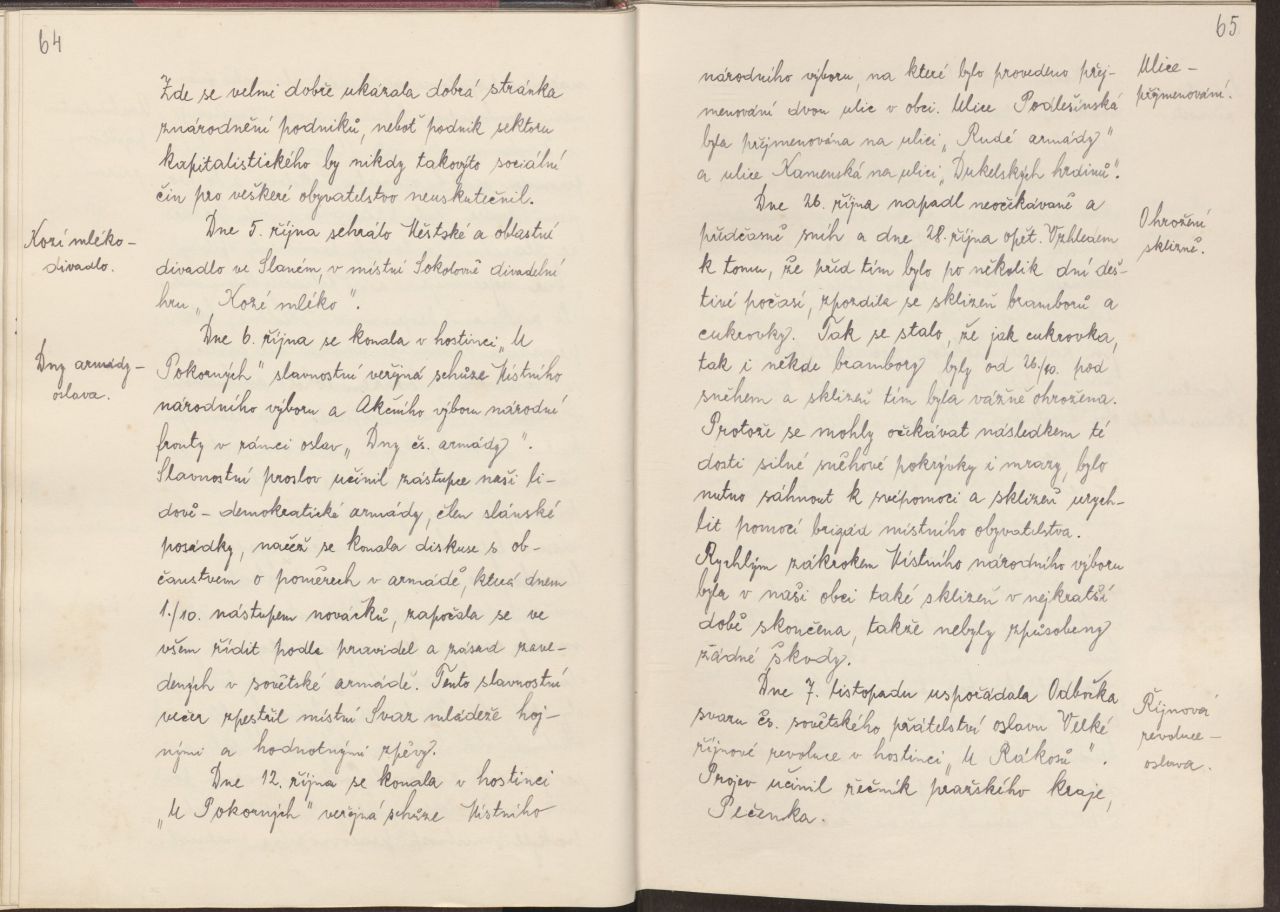 64
Zde se velmi dobře ukázala dobrá stránka
znárodnění podniků, neboť podnik sektoru
kapitalistického by nikdy takovýto sociální
čin pro veškeré obyvatelstvo neuskutečnil.
Kozí mléko -
divadlo.
Dne 5. října sehrálo Městské a oblastní
divadlo ve Slaném, v místní Sokolovně divadelní
hru „Kozí mléko".
Dny armády -
oslava.
Dne 6. října se konala v hostinci „U
Pokorných" slavnostní veřejná schůze Místního
národního výboru a Akčního výboru národní
fronty v rámci oslav „Dny čs. armády".
Slavnostní proslov učinil zástupce naší li-
dově - demokratické armády, člen slánské
posádky, načež se konala diskuse s ob-
čanstvem o poměrech v armádě, která dnem
1./10. nástupem nováčků, započala se ve
všem řídit podle pravidel a zásad zave-
dených v sovětské armádě. Tento slavnostní
večer zpestřil místní Svaz mládeže hoj-
nými a hodnotnými zpěvy.
Dne 12. října se konala v hostinci
„U Pokorných" veřejná schůze Místního
65
národního výboru, na které bylo provedeno přej-
menování dvou ulic v obci. Ulice Podlešínská
byla přejmenována na ulici „Rudé armády"
a ulice Kamenská na ulici „Dukelských hrdinů".
Ulice -
přejmenování.
Dne 26. října napadl neočekávaně a
předčasně sníh a dne 28. října opět. Vzhledem
k tomu, že před tím bylo po několik dní deš-
tivé počasí, zpozdila se sklizeň bramborů a
cukrovky. Tak se stalo, že jak cukrovka,
tak i někde brambory byly od 26./10. pod
sněhem a sklizeň tím byla vážně ohrožena.
Protože se mohly očekávat následkem té
dosti silné sněhové pokrývky i mrazy, bylo
nutno sáhnout k svépomoci a sklizeň urych-
lit pomocí brigád místního obyvatelstva.
Rychlým zákrokem Místního národního výboru
byla v naší obci také sklizeň v nejkratší
době skončena, takže nebyly způsobeny
žádné škody.
Ohrožení
sklizně.
Dne 7. listopadu uspořádala Odbočka
svazu čs. sovětského přátelství oslavu Velké
říjnové revoluce v hostinci „U Rákosů".
Projev učinil řečník pražského kraje,
Pečenka.
Říjnová
revoluce -
oslava.